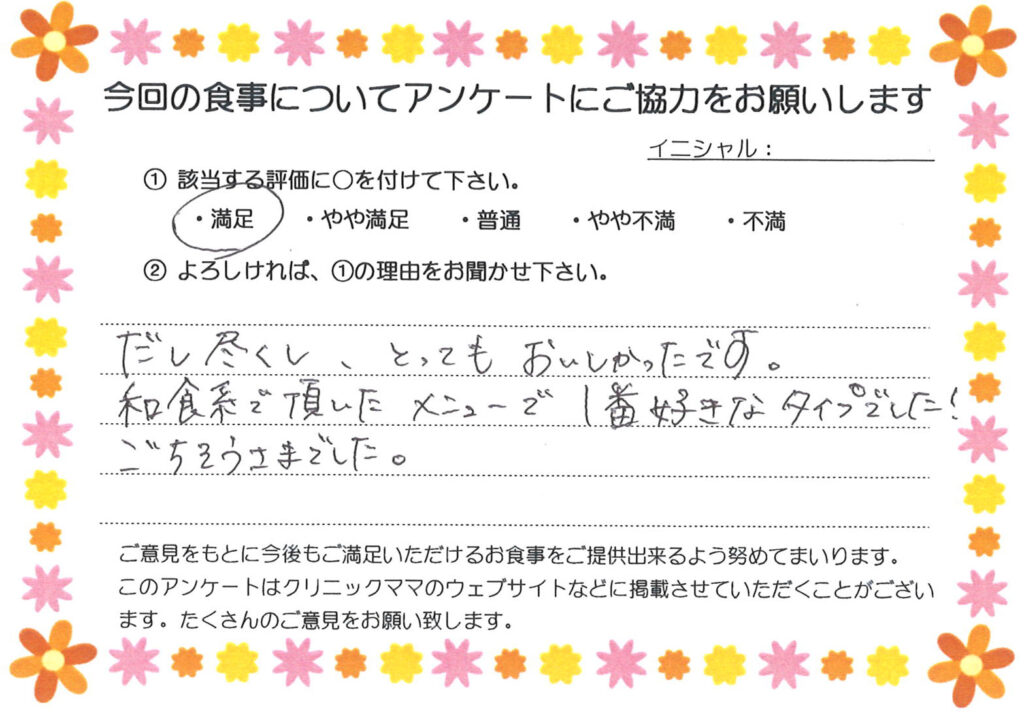 今回の食事についてアンケートにご協力をお願いします
イニシャル：
① 該当する評価に〇を付けて下さい。
・満足 ・やや満足 ・普通 ・やや不満 ・不満
② よろしければ、①の理由をお聞かせ下さい。
だし尽くし、とってもおいしかったです。
和食系で頂いたメニューで1番好きなタイプでした!
ごちそうさまでした。
ご意見をもとに今後もご満足いただけるお食事をご提供出来るよう努めてまいります。
このアンケートはクリニックママのウェブサイトなどに掲載させていただくことがござい
ます。たくさんのご意見をお願い致します。